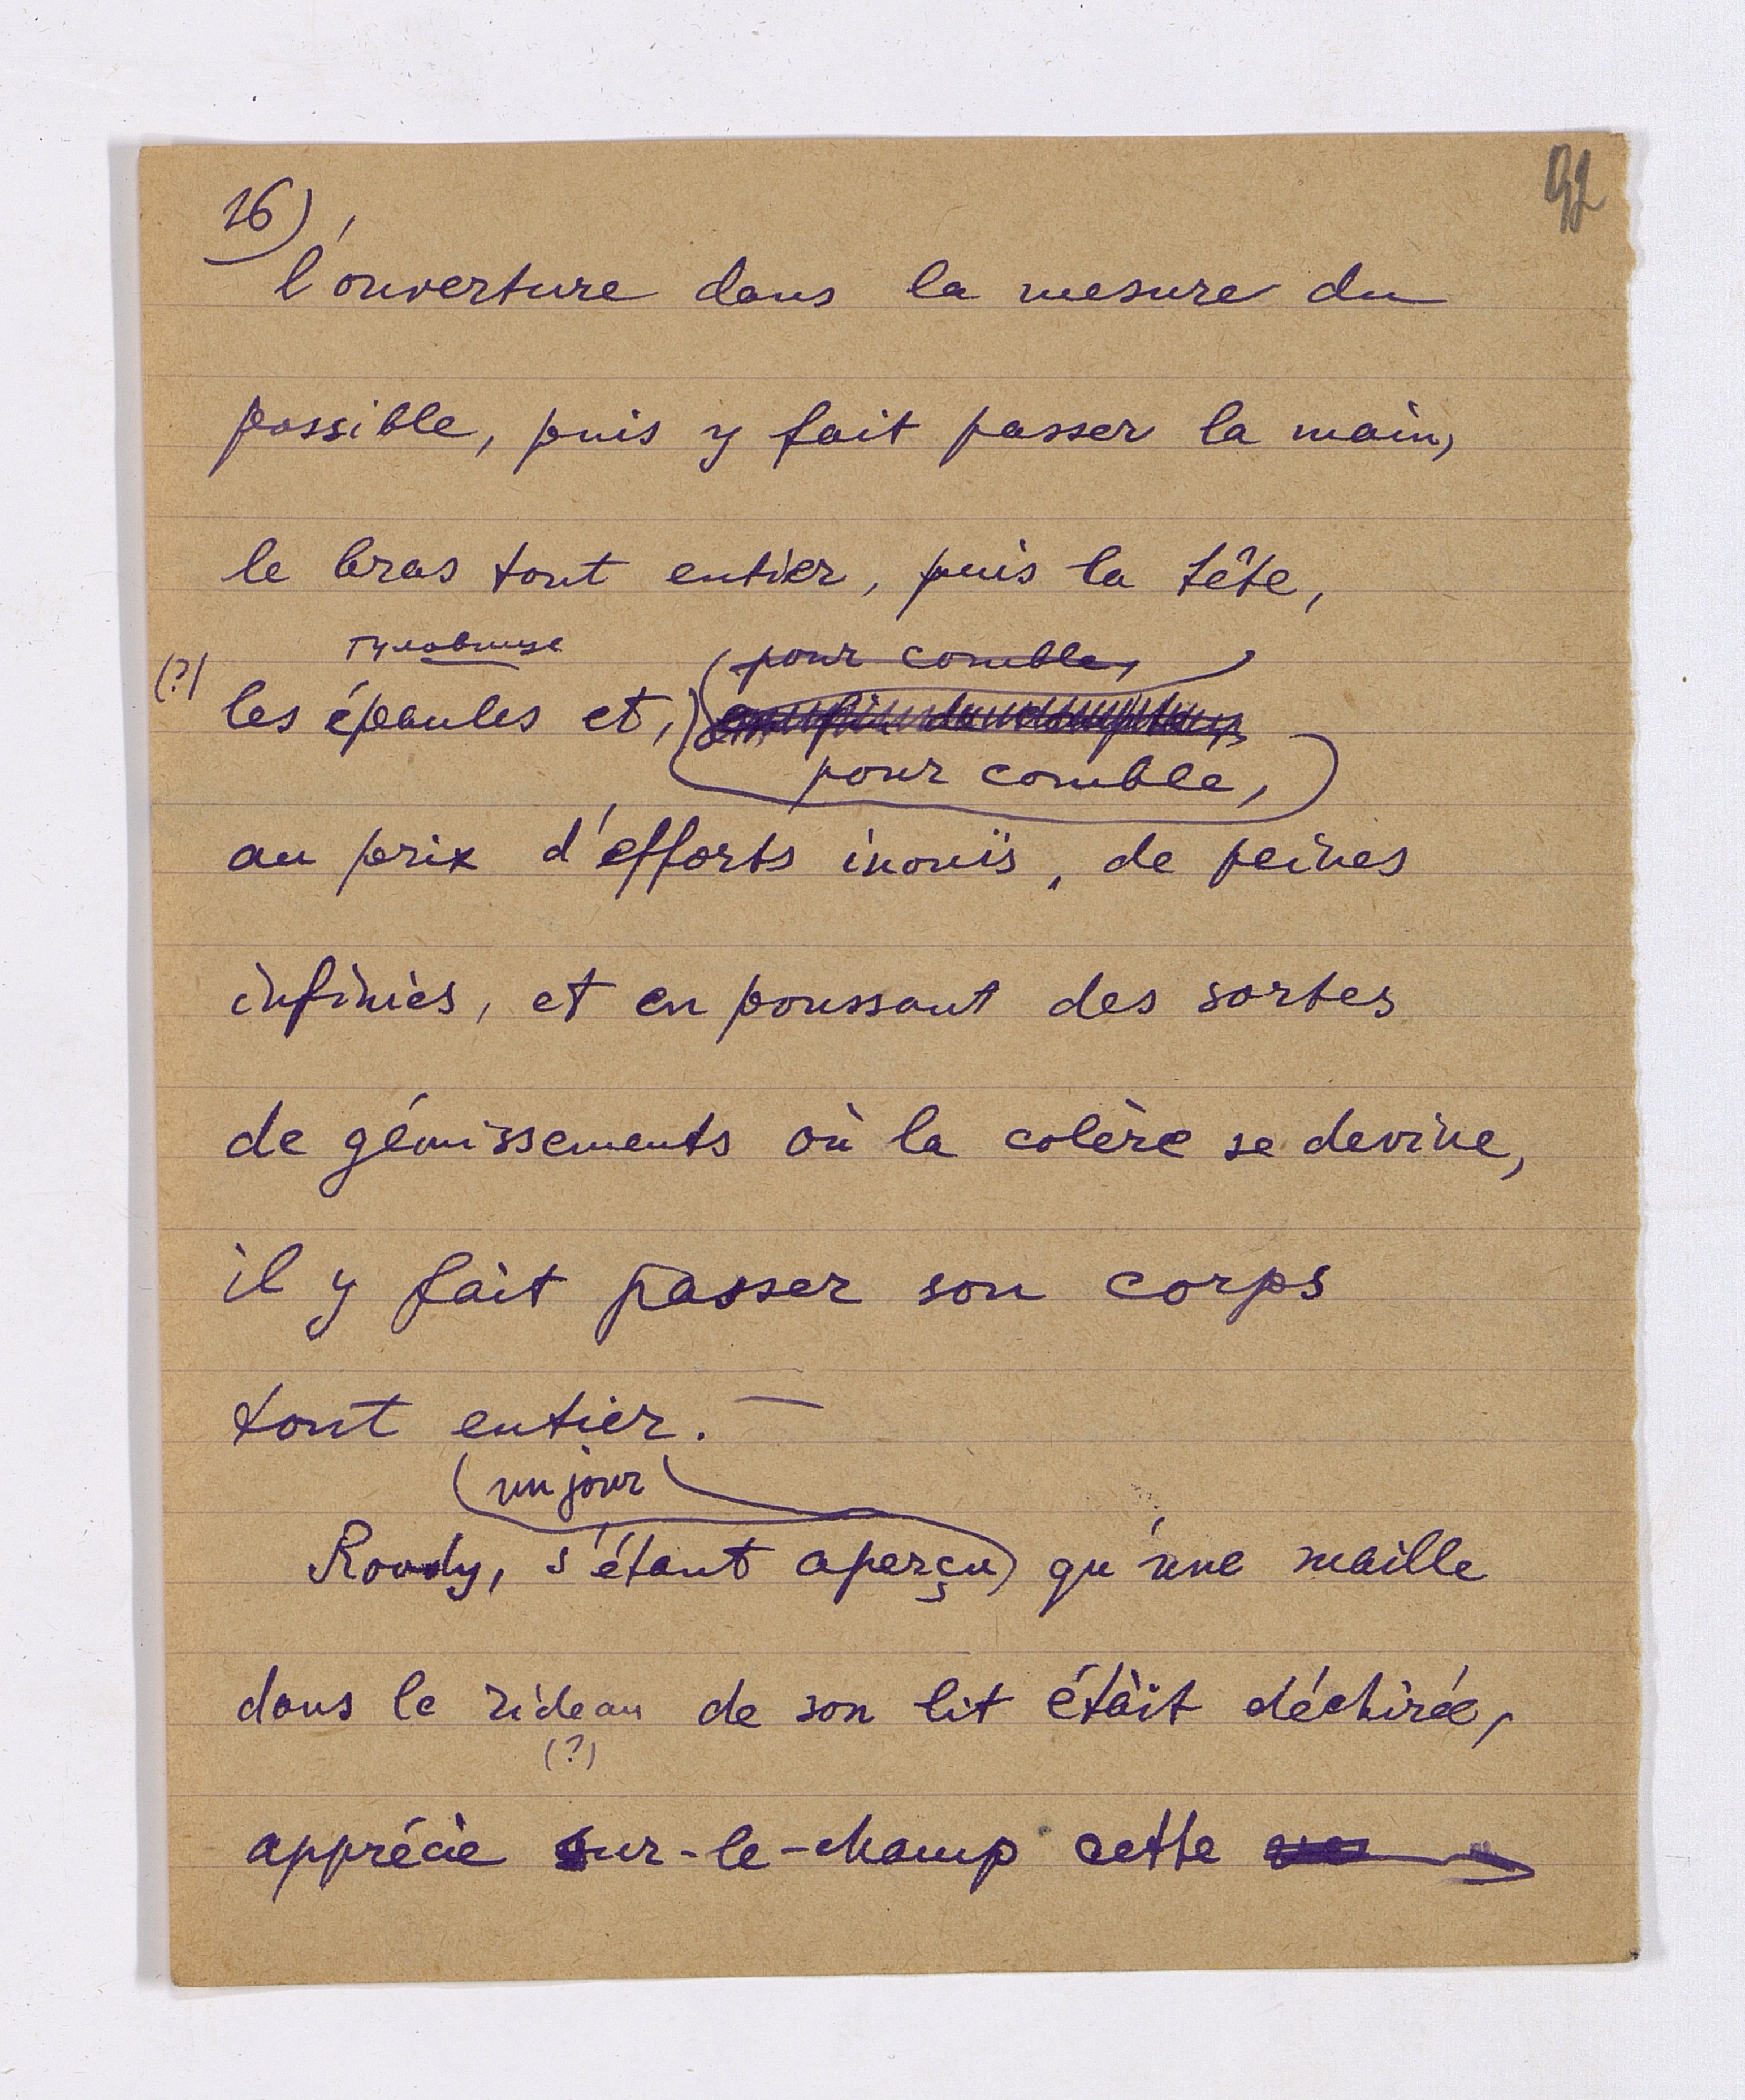 92
16)
l'ouverture dans la mesure du
possible, puis y fait passer la main,
le bras tout entier, puis la tête,
туловище
pour comble,
(?) les épaules et,
pour comble,
au prix d'efforts inouïs, de peines
infinies, et en poussant des sortes
de gémissements où la colère se devine,
il y fait passer son corps
tout entier. —
(un jour)
Roudy, s'étant aperçu qu'une maille
dans le rideau de son lit était déchirée,
(?)
apprécie sur-le-champ cette